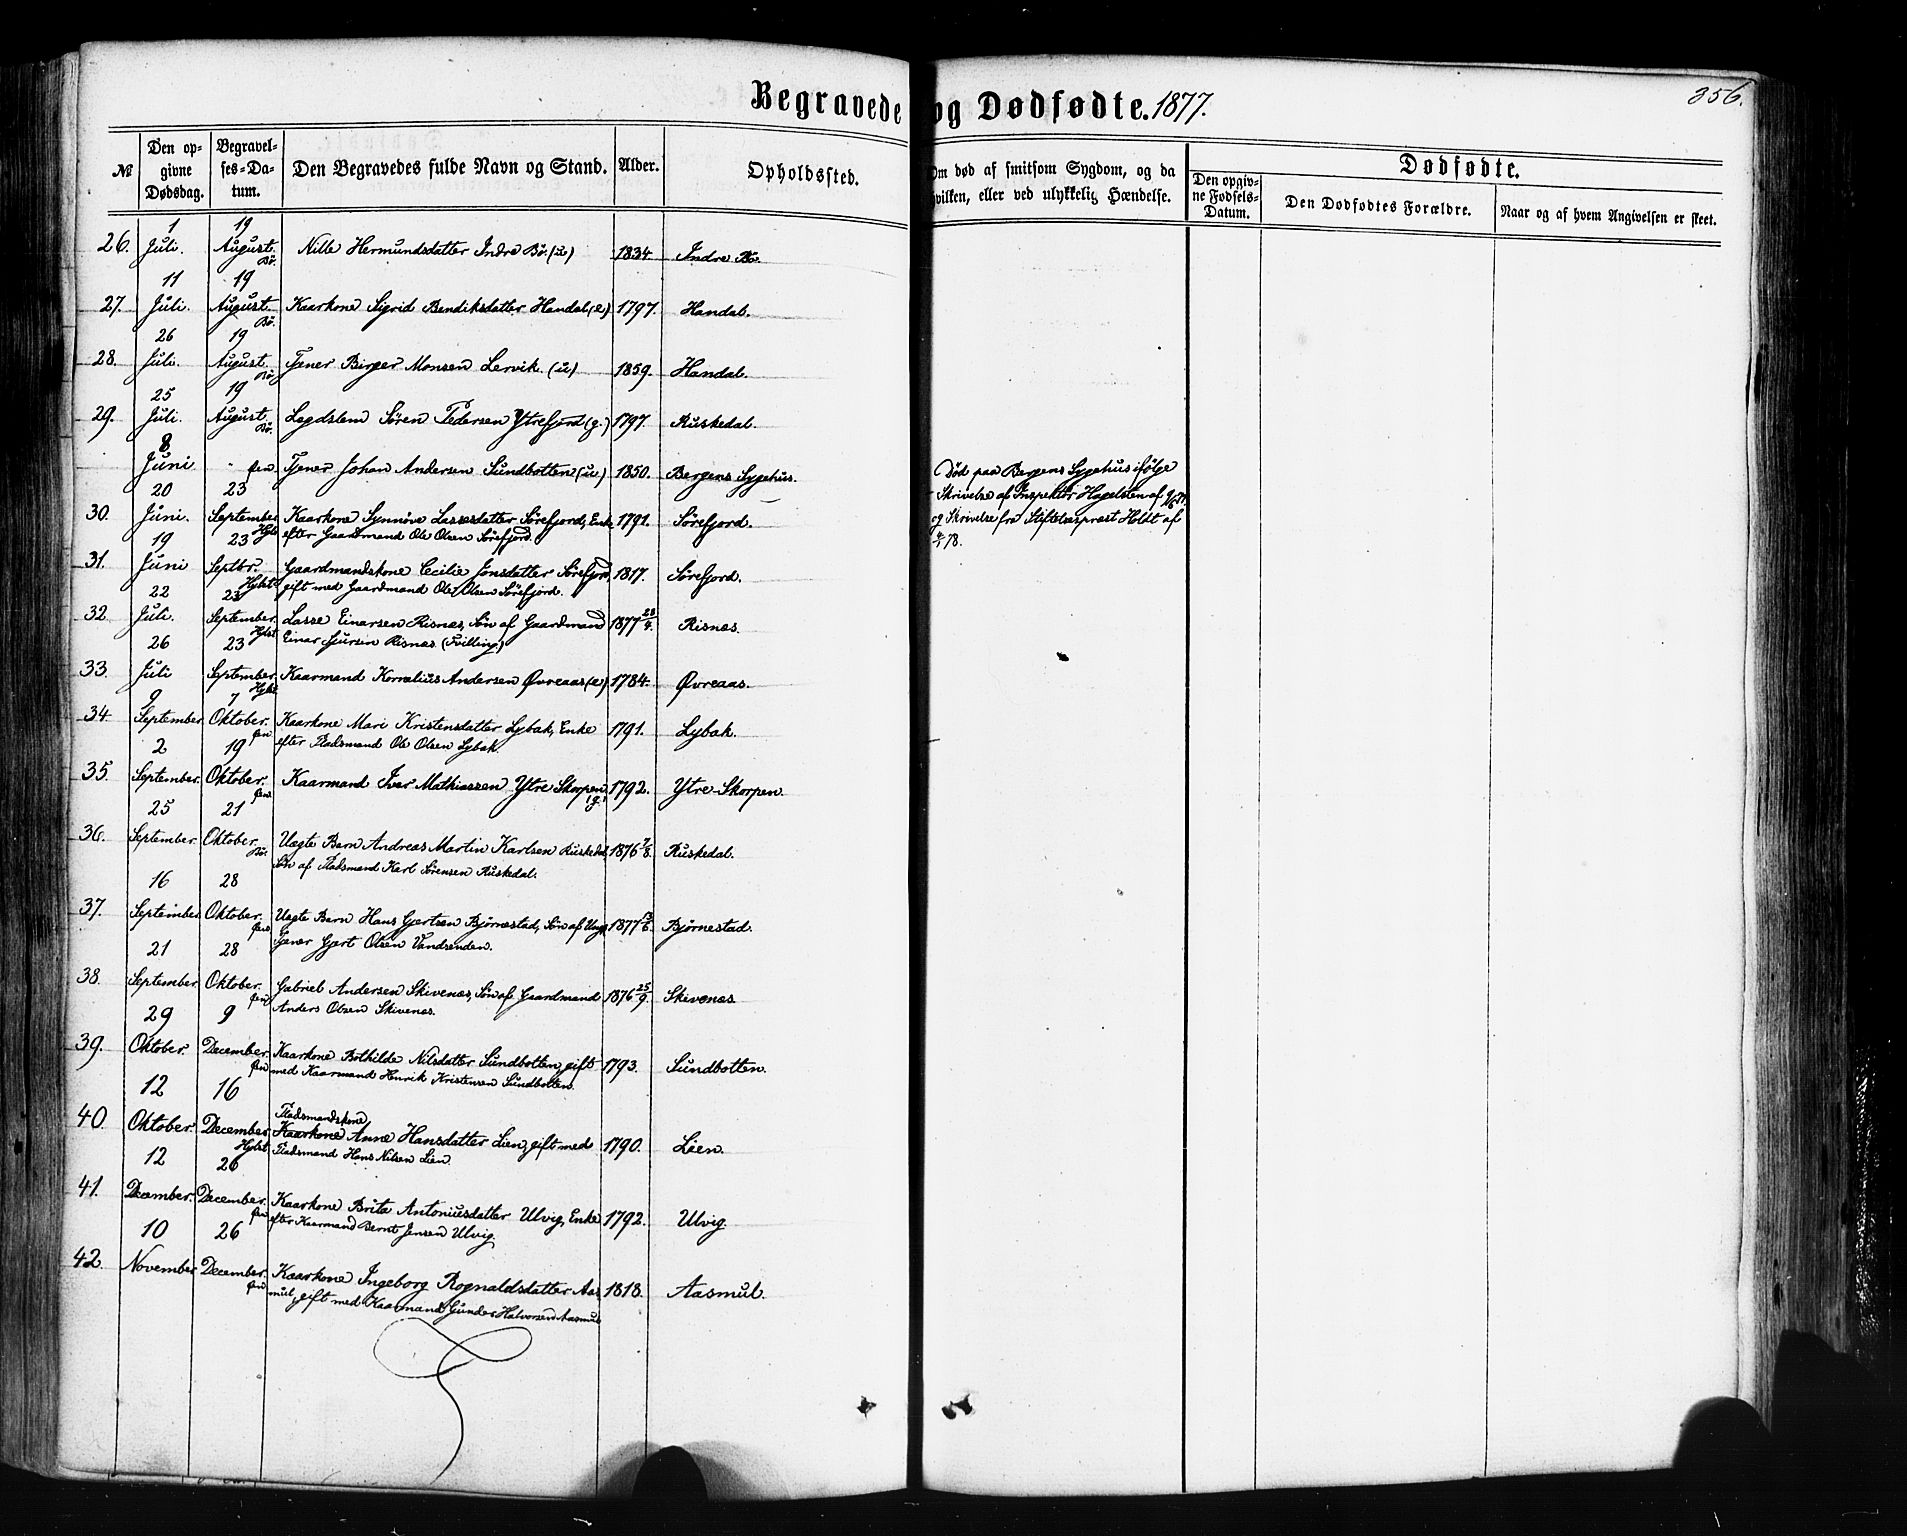 Begravede og Dødfødte. 1877.
356.
№
Den opgivne Dødsdag.
Begravelses-Datum.
Den Begravedes fulde Navn og Stand.
Alder.
Opholdssted.
Om død af smitsom Sygdom, og da hvilken, eller ved ulykkelig Hændelse.
Dødfødte.
Den opgivne Fødsels-Datum.
Den Dødfødtes Forældre.
Naar og af hvem Angivelsen er skeet.
26. 1 Juli. 19 August. Bø. Nille Hermundsdatter Indre Bø. (u) 1834. Indre Bø.
27. 11 Juli. 19 August. Bø. Kaarkone Sigrid Bendiksdatter Handal (e) 1797. Handal.
28. 26 Juli. 19 August. Bø. Tjener Birger Monsen Lervik. (u) 1859. Handal.
29. 25 Juli. 19 August. Bø. Lægdslem Sören Pedersen Ytrefjord (g.) 1797. Ruskedal.
8 Juni. Tjener Johan Andersen Sundbotten (u) 1850. Bergens Sygehus.
Død paa Bergens Sygehus ifölge
Skrivelse af Inspektör Hagelsten af
og Skrivelse fra Stiftelsespræst Holdt af
78.
30. 20 Juni. 23 September. Hylst. Kaarkone Synnöve Lassesdatter Sörefjord, Enke 1791. Sörefjord.
efter Gaardmand Ole Olsen Sörefjord.
31. 19 Juni 23 Septbr. Hylst. Gaardmandskone Cecilie Jonsdatter Sörefjord 1817. Sörefjord.
gift med Gaardmand Ole Olsen Sörefjord.
32. 22 Juli. 23 September. Hylst. Lasse Einarsen Risnæs, Søn af Gaardmand 1877 Risnæs.
Einar Sjursen Risnæs. (Tvilling.)
33. 26 Juli 23 September. Hylst. Kaarmand Kornelius Andersen Øvreaas (e) 1784. Øvreaas.
34. 9 September. 7 Oktober. Kaarkone Mari Kristensdatter Lybak, Enke 1791. Lybak.
efter Pladsmand Ole Olsen Lybak.
35. 2 September. 19 Oktober. Kaarmand Iver Mathiassen Ytre Skorpen (g.) 1792. Ytre-Skorpen.
36. 25 September. 21 Oktober. Bø. Uægte Barn Andreas Martin Karlsen Ruskedal, 1876 7/8. Ruskedal.
Søn af Pladsmand Karl Sörensen Ruskedal.
37. 16 September. 28 Oktober. Uægte Barn Hans Gjertsen Bjørnestad, Søn af Ungk. 1877 Bjørnestad.
Tjener Gjert Olsen Vandsenden.
38. 21 September. 28 Oktober. Gabriel Andersen Skivenæs, Søn af Gaardmand 1876 25/9. Skivenæs
Anders Olsen Skivenæs.
39. 29 Oktober. 9 December. Kaarkone Bothilde Nilsdatter Sundbotten, gift 1793. Sundbotten.
med Kaarmand Henrik Kristensen Sundbotten.
Pladsmandskone
40. 12 Oktober. 16 December. Hylst. Kaarkone Anne Hansdatter Lien, gift med 1790. Lien.
Pladsmand Hans Nilsen Lien.
41. 12 December. 26 December. Kaarkone Brita Antoniusdatter Ulvig, Enke 1792. Ulvig
efter Kaarmand Bernt Jensen Ulvig.
42. 10 November 26 December. Kaarkone Ingeborg Rognaldsdatter Aas- 1818. Aasmul.
mul, gift med Kaarmand Gunder Halvorsen Aasmul